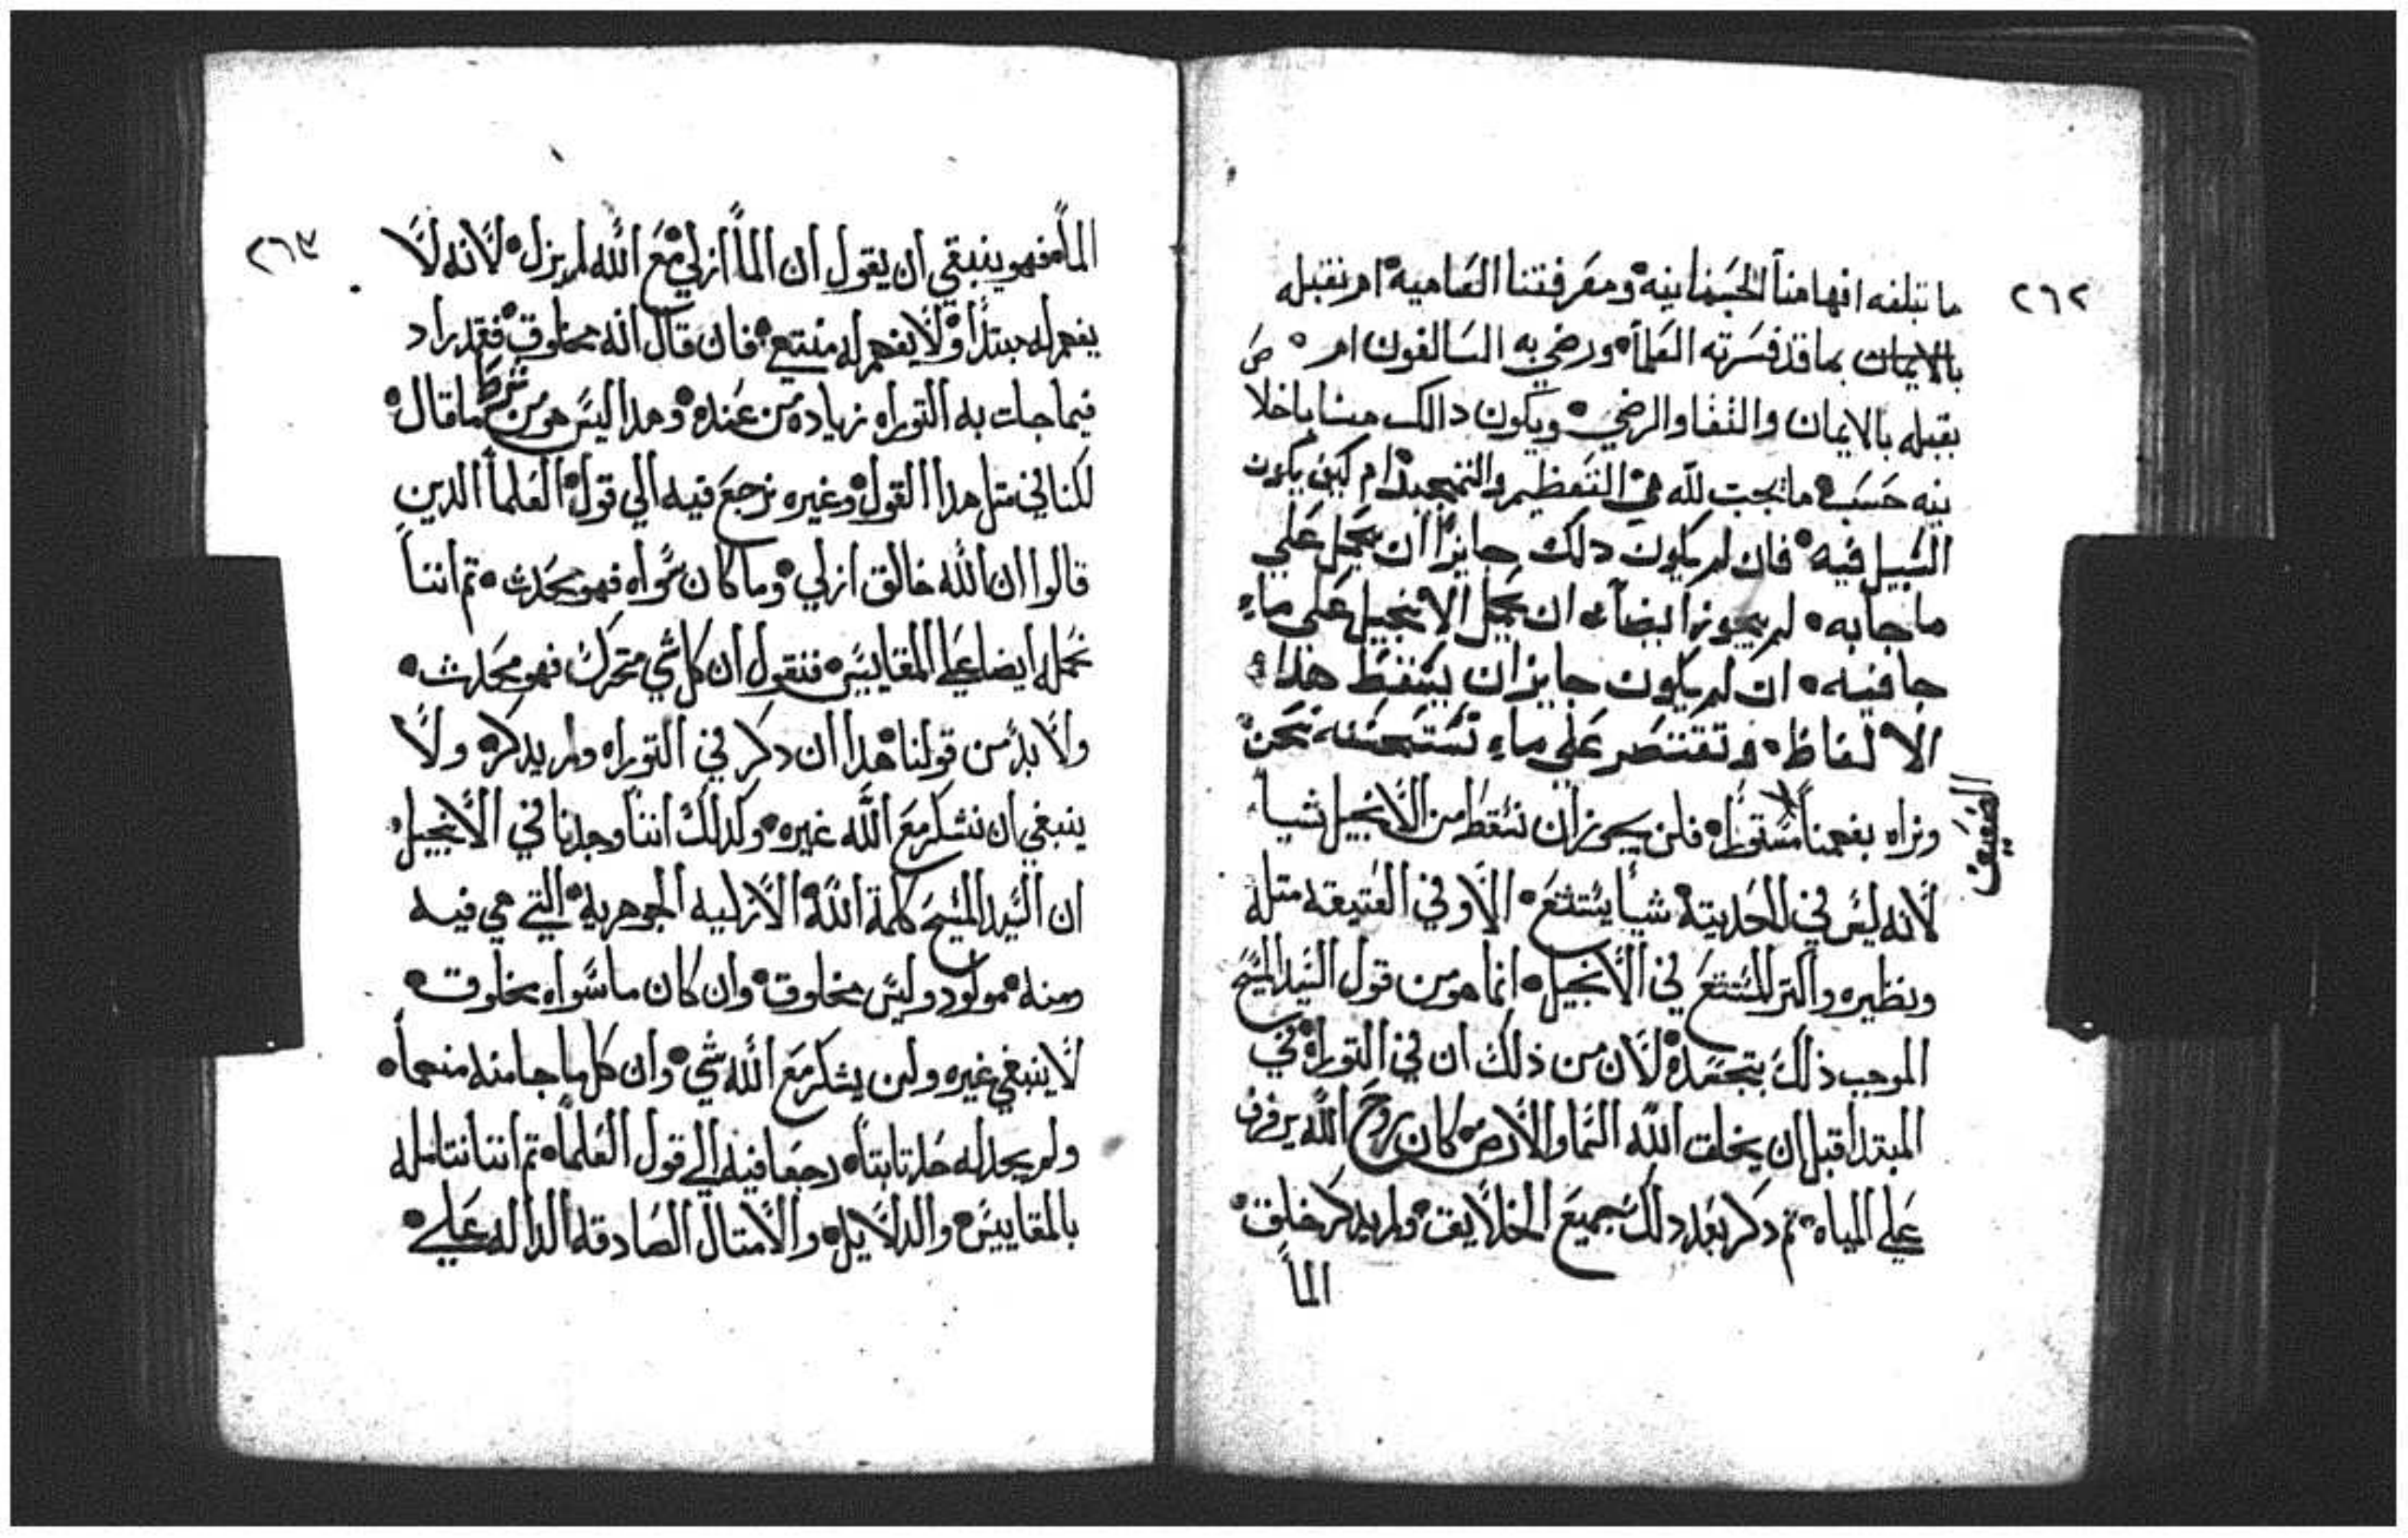 ٢٦٢
ما تبلغه افهامنا الجسمانيه ومعرفتنا العاميه ام نقبله
بالايمان بما قد فسرته العلما ورضي به السالفون ام ص
يقبله بالايمان والتقا والرضي ويكون دالك منا باخلا
نيه حسب ما يجب لله في التعظيم والتمجيد ام كيف يكون
السبيل فيه فان لم يكون دلك جايزا ان يحمل علي
ما جا به لم يجوز ايضا ان يحمل الانجيل علي ما
جا فيه ان لم يكون جايز ان يسقط هذا
الالفاظ وتقتصر علي ما نستحسنه نحن
ونراه بفهمنا مستورا فلن يجوز ان نسقط من الانجيل شيا
الضعيف
لانه ليس في الحديته شيا يستتنع الا وفي العتيقه متله
ونظيره واكتر المستنع في الانجيل انما هو من قول السيد المسيح
الموجب ذلك بتجسده لان من ذلك ان في التوراه في
المبتدا قبل ان يخلق الله السما والارض كان روح الله يرفرف
علي المياه تم دكر بعد دلك جميع الخلايق ولم يدكر خلق
الما
٢٦٣
الما فهو ينبغي ان يقول ان الما ازلي مع الله لم يزل لانه لا
يفهم له مبتدا ولا يفهم له منتهي فان قال انه مخلوق فقد زاد
فيما جات به التوراه زياده من عنده وهدا ليس هو من ما قال
لكنا في متل هدا القول وغيره نرجع فيه الي قول العلما الدين
قالوا ان الله خالق ازلي وما كان سواه فهو محدت تم اننا
نحمله ايضا علي المقاييس فنقول ان كل شي متحرك فهو محدت
ولا بد من قولنا هدا ان دكر في التوراه ولم يدكره ولا
ينبغي ان نشكر مع الله غيره وكدلك اننا وجدنا في الانجيل
ان السيد المسيح كلمة الله الازليه الجوهريه التي هي فيه
ومنه مولود وليس مخلوق وان كان ما سواه مخلوق
لا ينبغي غيره ولن يشكر مع الله شي وان كل ما جا منه منهما
ولم يجد له حد تابتا رجعا فيه الي قول العلما تم اننا نتامله
بالمقاييس والدلايل والامتال الصادقه الداله علي